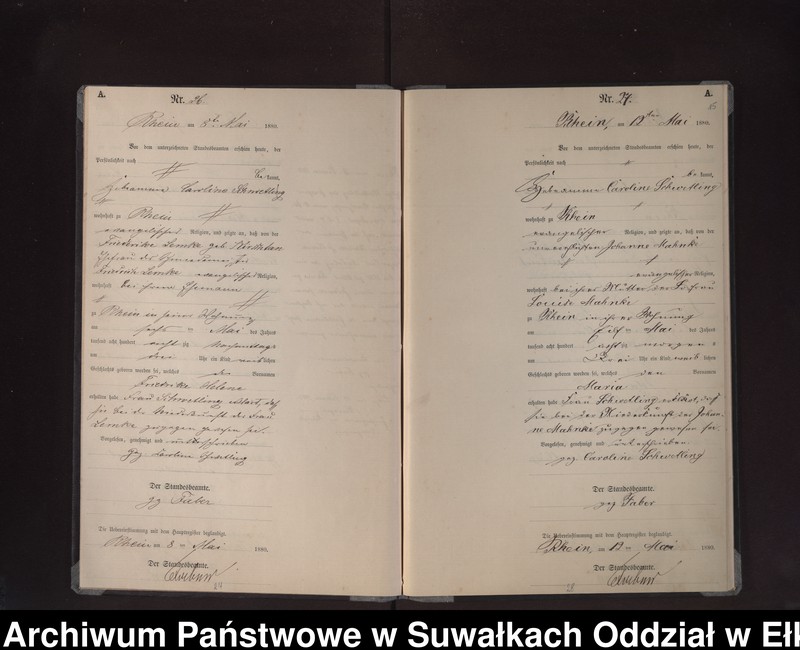 A.
Nr. 26
Rhein am 8ten Mai 1880.
Vor dem unterzeichneten Standesbeamten erschien heute, der
Persönlichkeit nach
be kannt,
Hebamme Caroline Schwetling
wohnhaft zu Rhein
evangelischer Religion, und zeigte an, daß von der
Friederike Lemke geb.
Ehefrau des
Lemke evangelischer Religion,
wohnhaft bei ihrem Ehemann
zu Rhein in seiner Wohnung
am sechs ten Mai des Jahres
tausend acht hundert acht zig Nachmittags
um drei Uhr ein Kind weiblichen
Geschlechts geboren worden sei, welches den Vornamen
Friedrike Helene
erhalten habe. Frau Schwetling erklärt, daß
sie bei der Niederkunft der Frau
Lemke zugegen gewesen sei.
Vorgelesen, genehmigt und unterschrieben
gez. Caroline Schwetling
Der Standesbeamte.
gez Faber
Die Uebereinstimmung mit dem Hauptregister beglaubigt.
Rhein am 8 ten Mai 1880.
Der Standesbeamte.
A.
Nr. 27.
Rhein, am 12ten Mai 1880.
Vor dem unterzeichneten Standesbeamten erschien heute, der
Persönlichkeit nach
be kannt,
Hebamme Caroline Schwetling
wohnhaft zu Rhein
evangelischer Religion, und zeigte an, daß von der
unverehelichten Johanne Mahnke
evangelischer Religion,
wohnhaft bei ihrer Mutter der Frau
Louise Mahnke
zu Rhein in ihrer Wohnung
am elf ten Mai des Jahres
tausend acht hundert achtzig morgens
um drei Uhr ein Kind weib lichen
Geschlechts geboren worden sei, welches den Vornamen
Maria
erhalten habe. Frau Schwetling erklärt, daß
sie bei der Niederkunft der Johan-
ne Mahnke zugegen gewesen sei.
Vorgelesen, genehmigt und unterschrieben
gez. Caroline Schwetling
Der Standesbeamte.
gez Faber
Die Uebereinstimmung mit dem Hauptregister beglaubigt.
Rhein, am 12 ten Mai 1880.
Der Standesbeamte.
Archiwum Państwowe w Suwałkach Oddział w Ełk